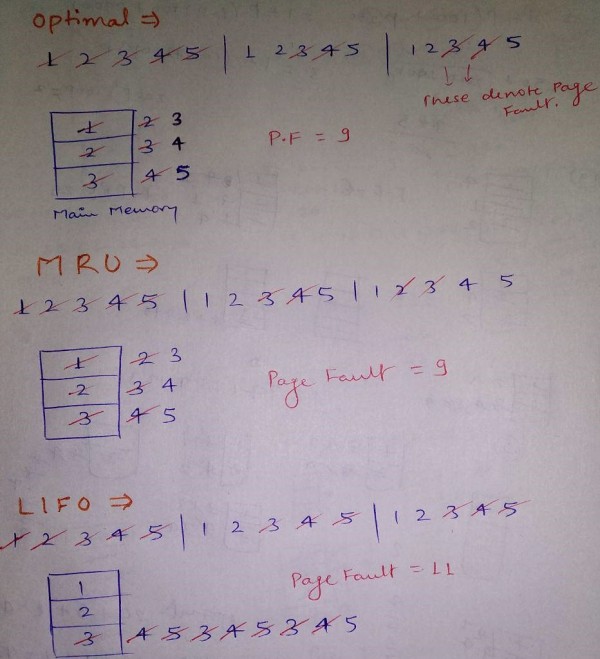 Optimal ⇒
1 2 3 4 5 | 1 2 3 4 5 | 1 2 3 4 5
These denote Page
Fault.
1 2 3
2 3 4
3 4 5
P.F = 9
Main Memory
MRU ⇒
1 2 3 4 5 | 1 2 3 4 5 | 1 2 3 4 5
1 2 3
2 3 4
3 4 5
Page Fault = 9
LIFO ⇒
1 2 3 4 5 | 1 2 3 4 5 | 1 2 3 4 5
Page Fault = 11
1
2
3 4 5 3 4 5 3 4 5